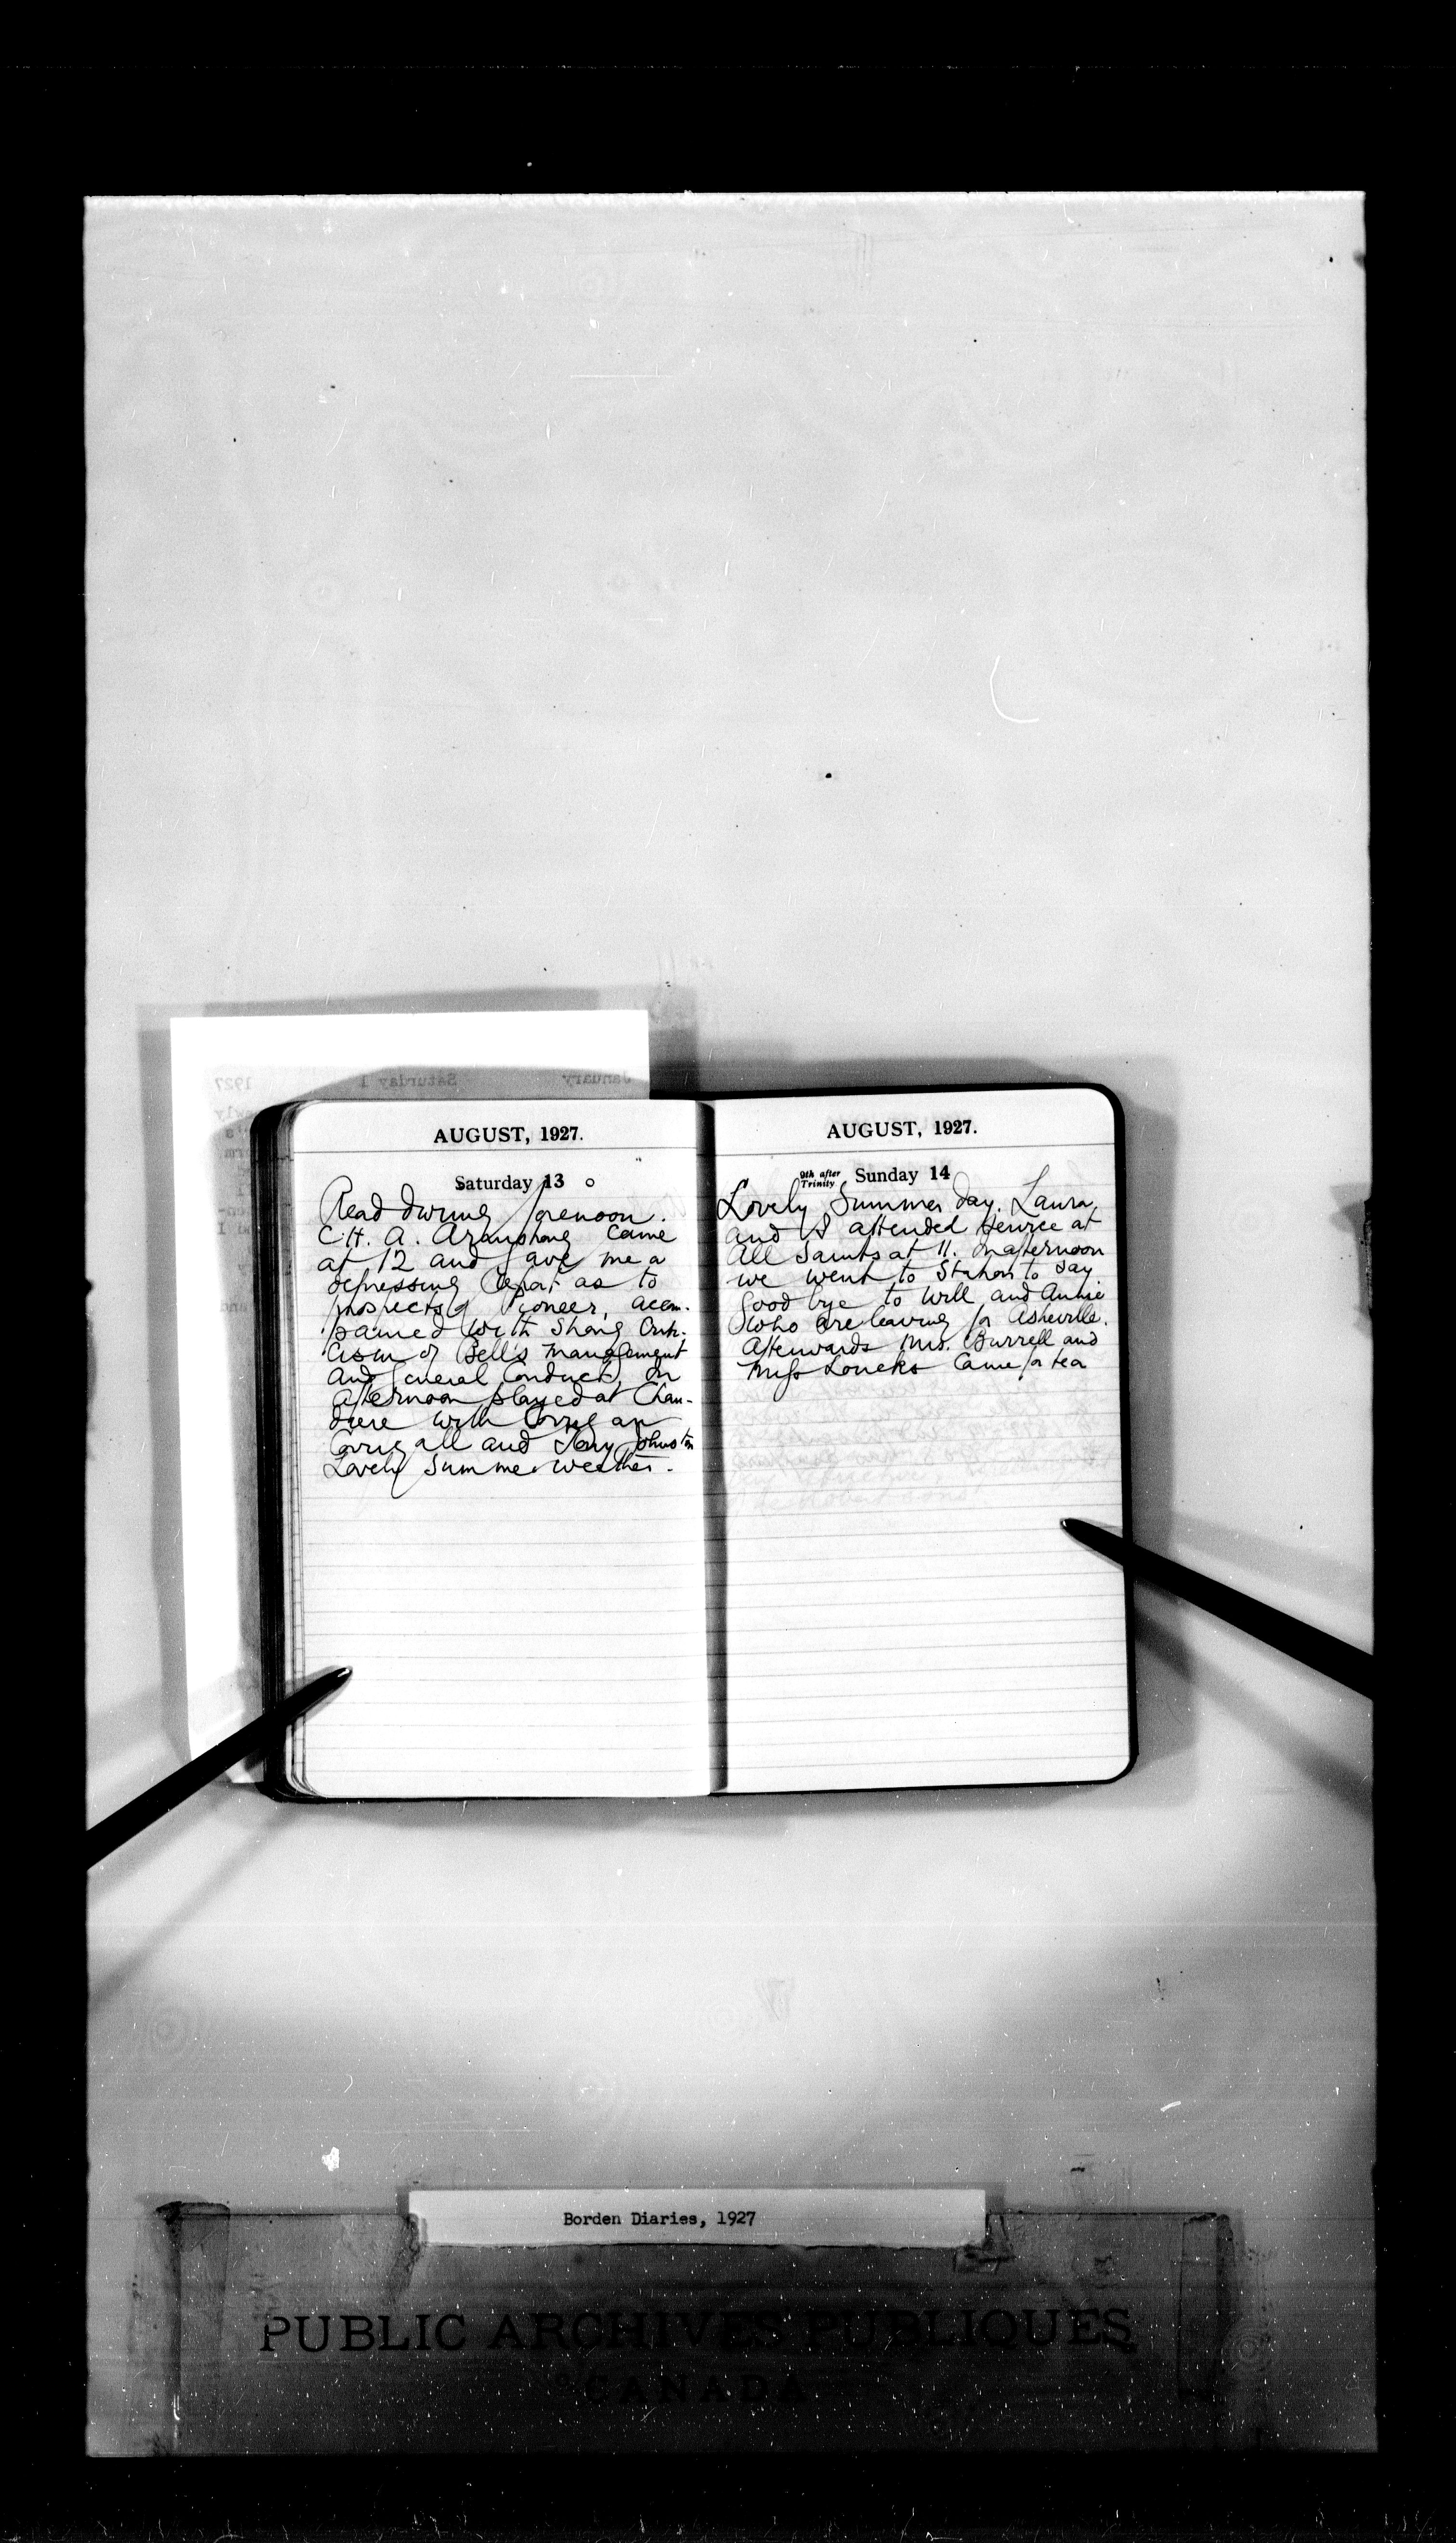 AUGUST, 1927.
Saturday 13
Read during forenoon.
C.H. A. Armstrong came
at 12 and gave me a
depressing report as to
prospects of Pioneer, accom-
panied with strong criti-
cism of Bell's management
and general conduct. In
afternoon played at Chau-
diere with
Corrigall and Johnston
Lovely summer weather.
AUGUST, 1927.
9th after Trinity. Sunday 14
Lovely Summer day. Laura
and I attended service at
All Saints at 11. In afternoon
we went to Station to say
good bye to Will and Annie
who are leaving for Asheville.
Afterwards Mrs. Burrell and
Miss Loucks came for tea
January Saturday 1 1927
Borden Diaries, 1927
PUBLIC ARCHIVES PUBLIQUES
CANADA